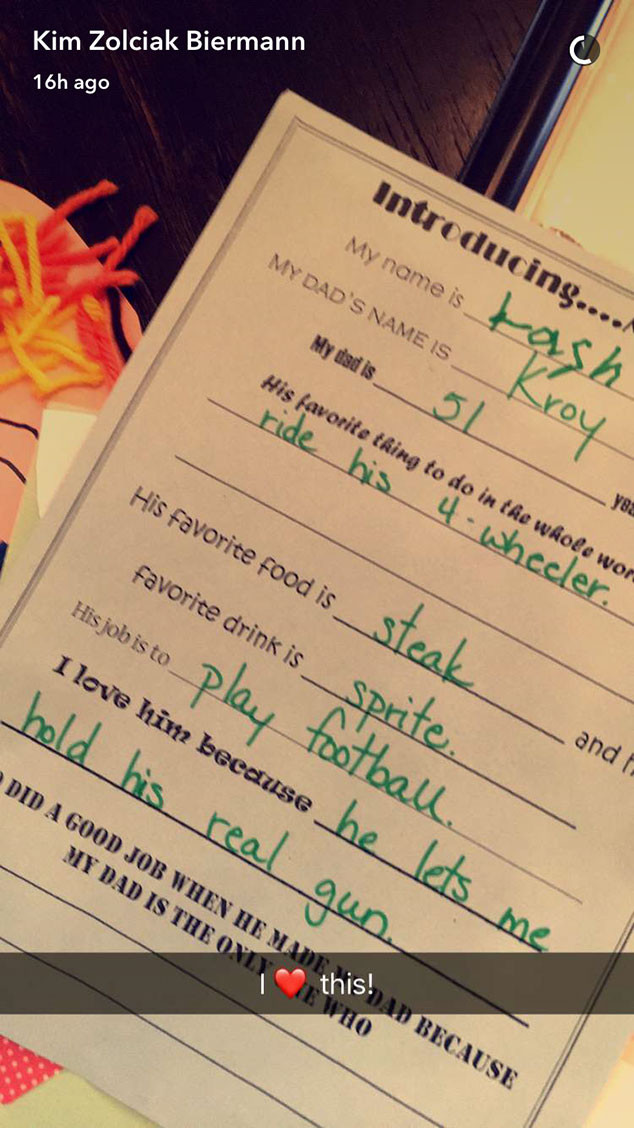 Kim Zolciak Biermann
16h ago
Introducing....
My name is Kash
MY DAD'S NAME IS Kroy
My dad is 51
His favorite thing to do in the whole
ride his 4-wheeler.
His favorite food is steak and
favorite drink is sprite.
His job is to play football.
I love him because he lets me
hold his real gun.
DID A GOOD JOB WHEN HE MADE MY DAD BECAUSE
MY DAD IS THE ONLY ONE WHO
I ❤️ this!